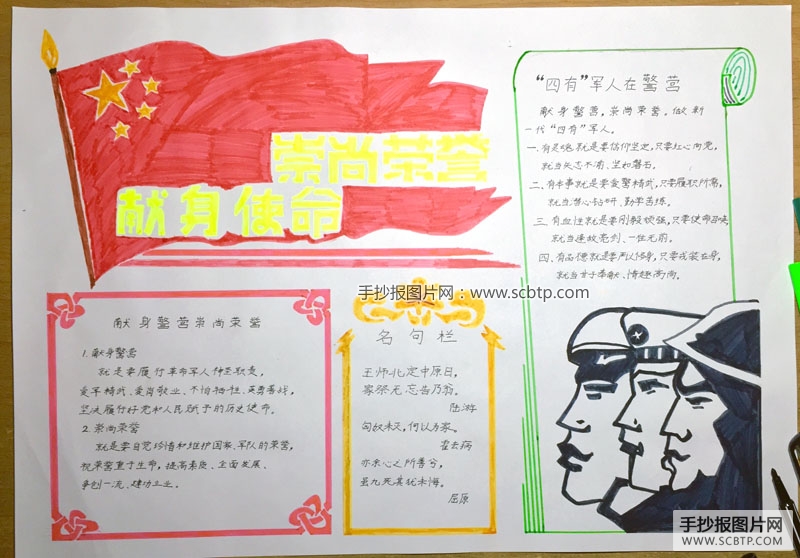 崇尚荣誉
献身使命
“四有”军人在警营
献身警营,崇尚荣誉,做新
一代“四有”军人。
一.有灵魂就是要信仰坚定,只要红心向党,
就当矢志不渝、坚如磐石。
二.有本事就是要爱警精武,只要履职所需,
就当潜心钻研、勤学苦练。
三.有血性就是要刚毅顽强,只要使命召唤,
就当逢敌亮剑、一往无前。
四.有品德就是要严以修身,只要戎装在身,
就当甘于奉献、情趣高尚。
手抄报图片网:www.scbtp.com
献身警营崇尚荣誉
1.献身警营
就是要履行革命军人神圣职责,
爱军精武、爱岗敬业、不怕牺牲、英勇善战,
坚决履行好党和人民赋予的历史使命。
2.崇尚荣誉
就是要自觉珍惜和维护国家、军队的荣誉,
视荣誉重于生命,提高素质、全面发展、
争创一流、建功立业。
名句栏
王师北定中原日,
家祭无忘告乃翁。
陆游
匈奴未灭,何以为家。
霍去病
亦余心之所善兮,
虽九死其犹未悔。
屈原
手抄报图片网
WWW.SCBTP.COM